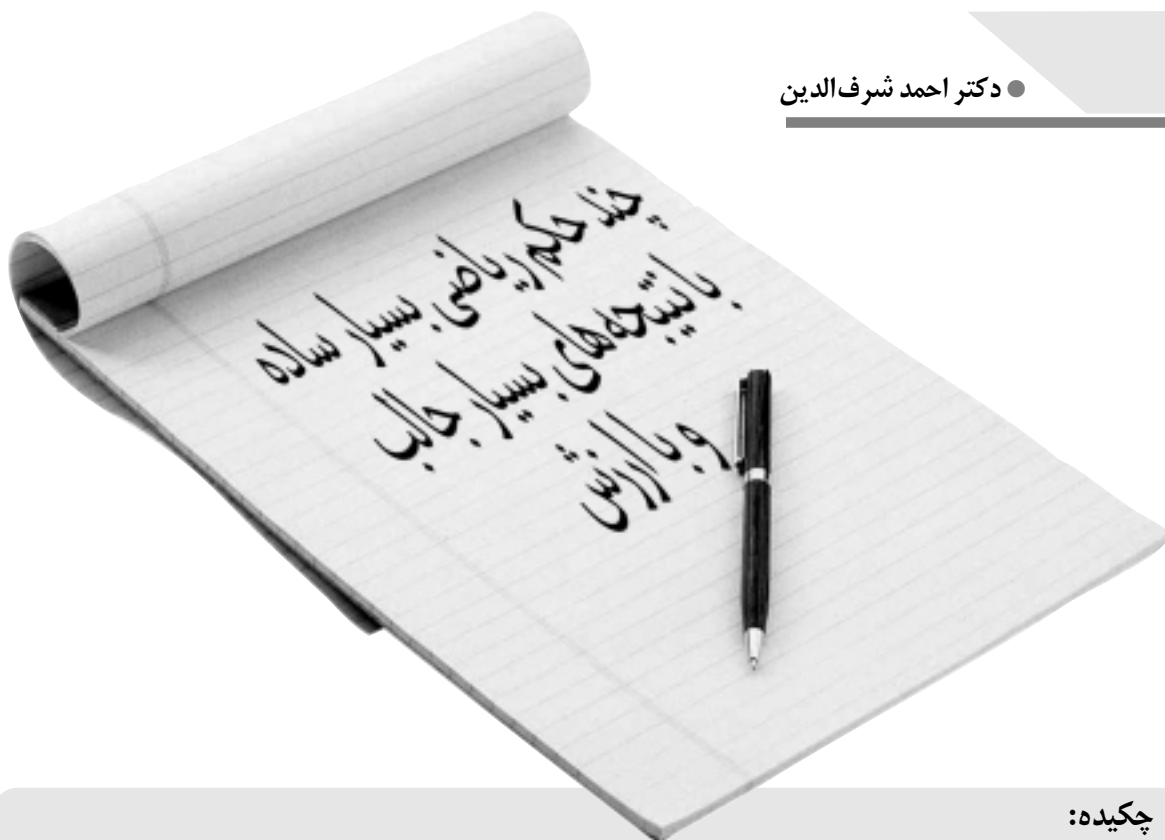 ● دکتر احمد شرف‌الدین
چند حکم ریاضی بسیار ساده
با نتیجه‌های بسیار جالب
و با ارزش
چکیده: